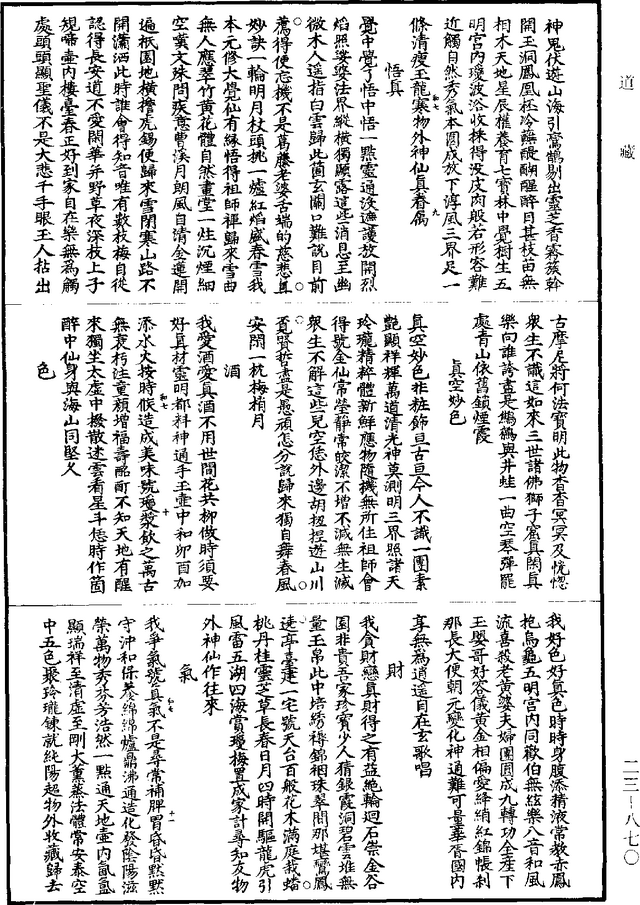 道藏
神鬼伏遊山海引鸞鶴剔出靈芝香霧蔟幹
開玉洞鳳凰柸冷蘸醲醐醒醉目其枝苗無
相木天地星辰權養育七寶林中覺樹生五
明宮內瓊波浴收株得沒皮肉般若形容難
近觸自然秀氣本圓成放下淳風三界足一
條清瘦玉龍寒物外神仙真眷屬
悟真
覺中覺了悟中悟一點靈通沒遮護放開烈
焰照娑婆法界縱橫獨顯露這些消息至幽
微木人遥指白雲歸此箇玄關口難說目前
薦得便忘機不是葛藤老婆舌端的慈悲真
妙訣一輪明月杖頭挑一爐紅焰威春雪我
本元修大覺仙有緣悟得祖師禪歸來雪曲
無人應翠竹黃花體自然畫堂一炷沉煙細
空爇文殊問疾意曹溪月朗風自清金蓮開
遍祇園地橫擔虎錫便歸來雪閉寒山路不
開瀟洒此時誰會得知音唯有數枝梅自從
認得長安道不愛閑華并野草夜深枝上子
規啼壷內樓臺春正好到家自在樂無為觸
處頭頭顯聖儀不是大悲千手眼玉人拈出
古摩尼將何法寶明此物杳杳冥冥及恍惚
衆生不識這如來三世諸佛獅子窟真閑真
樂向誰誇盡是鷦鷯與井蛙一曲空琴彈罷
處青山依舊鎖煙霞
真空妙色
真空妙色非粧飾亘古亘今人不識一團素
艷顯祥輝萬道清光神莫測明三界照諸天
玲瓏精粹體新鮮應物隨機無所住祖師會
得號金仙常瑩靜常皎潔不增不減無生滅
衆生不解這些兒空恁外邊胡扭捏遊山川
覓賢哲盡是愚頑怎分說歸來獨自舞春風
安閑一枕梅梢月
酒
我愛酒愛真酒不用世間花共柳做時須要
好真材靈明都料神通手玉壷中和卯酉加
添水火按時候造成美味號瓊漿飲之萬古
無衰朽注童顏增福壽酩酊不知天地有醒
來獨坐太虛中撥散迷雲看星斗恁時作箇
醉中仙身與海山同堅久
色
我好色好真色時時身腹添精液常教赤鳳
抱烏龜五明宮內同歡伯無絃樂八音和風
流喜殺老黃婆夫婦團圓成九轉功全産下
玉嬰哥好容儀黃金相偏愛絳綃紅錦帳刹
那長大便朝元變化神通難可量華胥國內
享無為逍遥自在玄歌唱
財
我貪財戀真財得之有益絶輪迴石崇金谷
園非貴吾家珍寶少人猜銀霞洞碧雲堆無
量玉帛此中培綉褥錦裀珠翠間那堪鸞鳳
遶亭臺建一宅號天台百般花木滿庭栽蟠
桃丹桂靈芝草長春日月四時開驅龍虎引
風雷五湖四海賞瓊梅置成家計尋知友物
外神仙作往來
氣
我爭氣號真氣不是尋常補脾胃昏昏默默
守沖和保養綿綿爐鼎沸通造化發陰陽滋
榮萬物秀芬芳浩然一點通天地壷內氤氳
顯瑞祥至清虛至剛大薰蒸法體常安泰空
中五色聚玲瓏鍊就純陽超物外收藏歸去
二三－八七〇